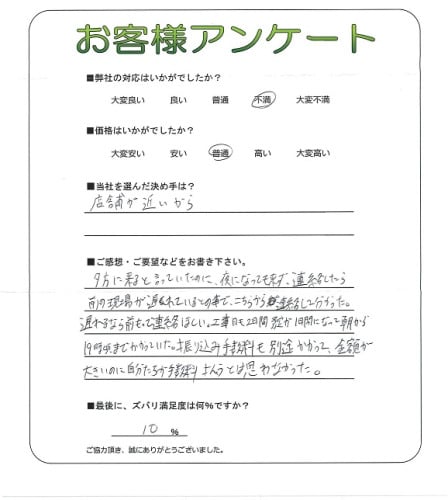 お客様アンケート
■弊社の対応はいかがでしたか？
大変良い 良い 普通 不満 大変不満
■価格はいかがでしたか？
大変安い 安い 普通 高い 大変高い
■当社を選んだ決め手は？
店舗が近いから
■ご感想・ご要望などをお書き下さい。
夕方に来ると言っていたのに、夜になっても来ず、連絡したら
前の現場が遅れているとの事で、こちらから連絡して分かった。
遅れるなら前もって連絡ほしい。工事日も2日間が1日間になって朝から
19時頃までかかっていた。振り込み手数料も別途かかって、金額が
大きいのに自分たちが手数料はらうとは思わなかった。
■最後に、ズバリ満足度は何%ですか？
10 %
ご協力頂き、誠にありがとうございました。